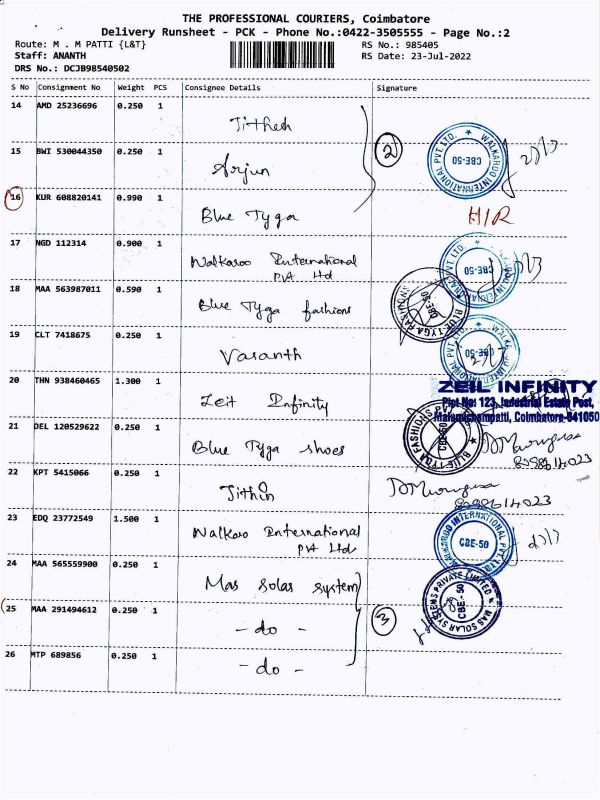 THE PROFESSIONAL COURIERS, Coimbatore
Delivery Runsheet - PCK - Phone No.:0422-3505555 - Page No.:2
Route: M . M PATTI {L&T}
RS No.: 985405
Staff: ANANTH
RS Date: 23-Jul-2022
DRS No.: DCJB98540502
S No Consignment No Weight PCS Consignee Details Signature
14 AMD 25236696 0.250 1
Jithesh
2
WALKAROO INTERNATIONAL PVT. LTD. CBE-50
15 BWI 530044350 0.250 1
Arjun
16 KUR 608820141 0.990 1
Blue Tyga
H/R
17 NGD 112314 0.900 1
Walkaroo International
Pvt Ltd
CBE-50
18 MAA 563987011 0.590 1
Blue Tyga fashions
BLUE TYGA FASHIONS CBE-50
19 CLT 7418675 0.250 1
Vasanth
20 THN 938460465 1.300 1
Zeit Infinity
ZEIL INFINITY
Plot No: 123, Industrial Estate Post,
Malumichampatti, Coimbatore-641050
21 DEL 120529622 0.250 1
Blue Tyga shoes
BLUE TYGA FASHIONS CBE-50
22 KPT 5415066 0.250 1
Jithin
23 EDQ 23772549 1.500 1
Walkaroo International
Pvt Ltd
WALKAROO INTERNATIONAL PVT. LTD. CBE-50
24 MAA 565559900 0.250 1
Mas Solar System
MAS SOLAR SYSTEMS PRIVATE LIMITED CBE-50
25 MAA 291494612 0.250 1
- do -
3
26 MTP 689856 0.250 1
- do -